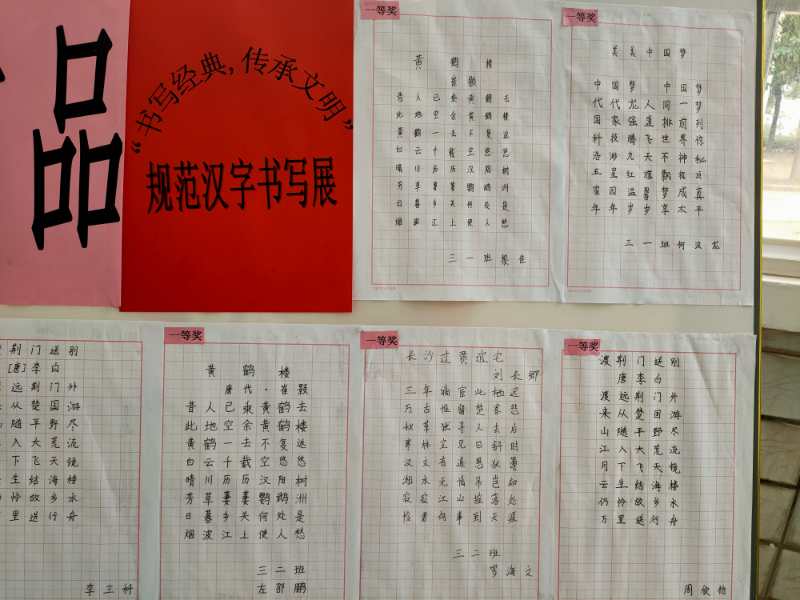 品
“书写经典,传承文明”
规范汉字书写展
一等奖
黄鹤楼
崔颢
昔人已乘黄鹤去
此地空余黄鹤楼
黄鹤一去不复返
白云千载空悠悠
晴川历历汉阳树
芳草萋萋鹦鹉洲
日暮乡关何处是
烟波江上使人愁
三一班
一等奖
美美中国梦
中国梦中国梦
代代龙人同一梦
国家强蓬排前列
科技腾飞世界惊
九天不神秘
五星红耀飘极点
家园温馨梦成真
年年岁岁享太平
三一班何汶龙
荆门送别
[唐]李白
远荆门外
从楚国游
随平野尽
入大荒流
下飞天镜
生结海楼
怜故乡水
里送行舟
李
一等奖
黄鹤楼
唐代·崔颢
昔人已乘黄鹤去
此地空余黄鹤楼
黄鹤一去不复返
白云千载空悠悠
晴川历历汉阳树
芳草萋萋鹦鹉洲
日暮乡关何处是
烟波江上使人愁
三二班
左邵鹏
一等奖
长沙过贾谊宅
刘长卿
三年谪宦此栖迟
万古惟留楚客悲
秋草独寻人去后
寒林空见日斜时
汉文有道恩犹薄
湘水无情吊岂知
寂寂江山摇落处
怜君何事到天涯
三二班
罗海文
一等奖
渡荆门送别
唐李白
渡远荆门外
来从楚国游
山随平野尽
江入大荒流
月下飞天镜
云生结海楼
仍怜故乡水
万里送行舟
周欣怡